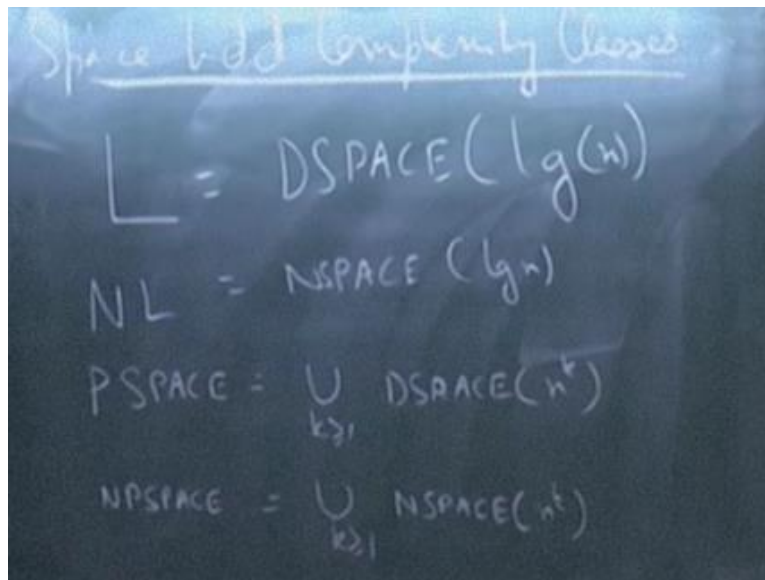 Space bdd Complexity Classes
L = DSPACE(lg(n))
NL = NSPACE (lg n)
PSPACE = ∪ DSPACE(n^k)
k≥1
NPSPACE = ∪ NSPACE(n^k)
k≥1